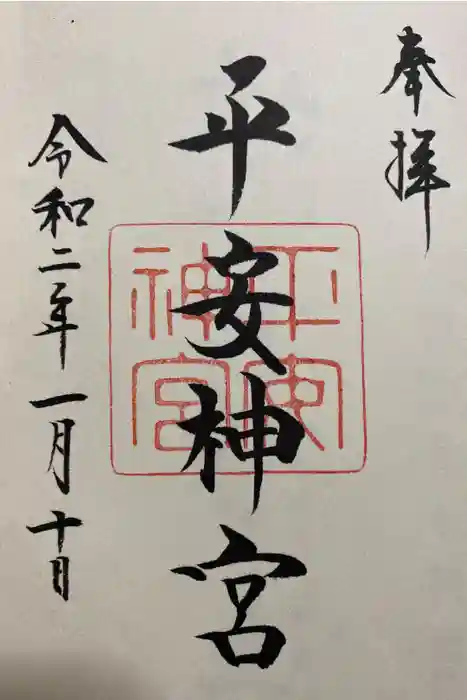 奉拝
平安神宮
平安神宮
令和二年一月十日